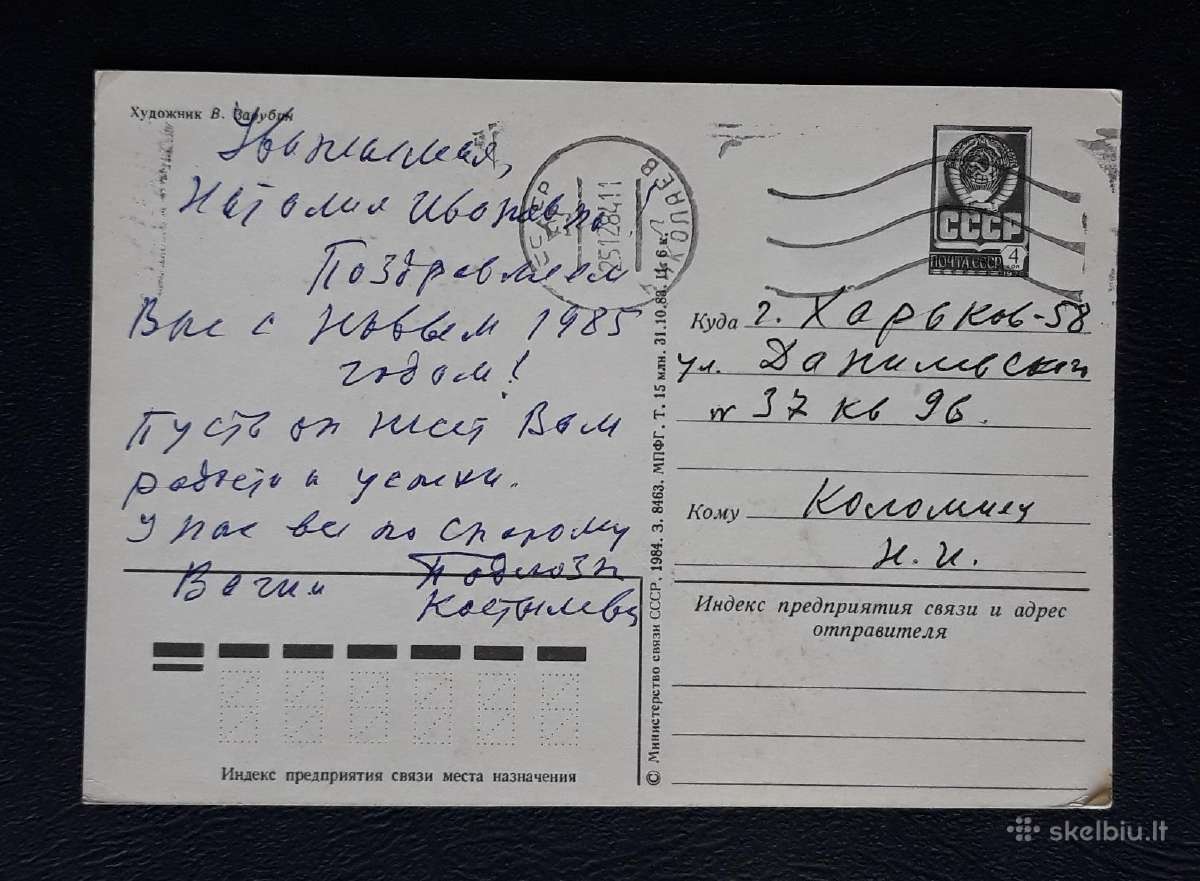 Художник В. Зарубин
Уважаемая,
Наталия Ивановна
Поздравляем
Вас с Новым 1985
годом!
Пусть он несет Вам
радости и успехи.
У нас все по старому
Ваши
СССР
ПОЧТА СССР
4
коп
251284
Куда г. Харьков-58
ул. Данилевски
37 кв 96.
Кому Коломиец
Н. И.
Индекс предприятия связи и адрес
отправителя
Индекс предприятия связи места назначения
© Министерство связи СССР, 1984. З. 8463. МПФГ. Т. 15 млн. 31.10.83. Ц. 6 к.
skelbiu.lt